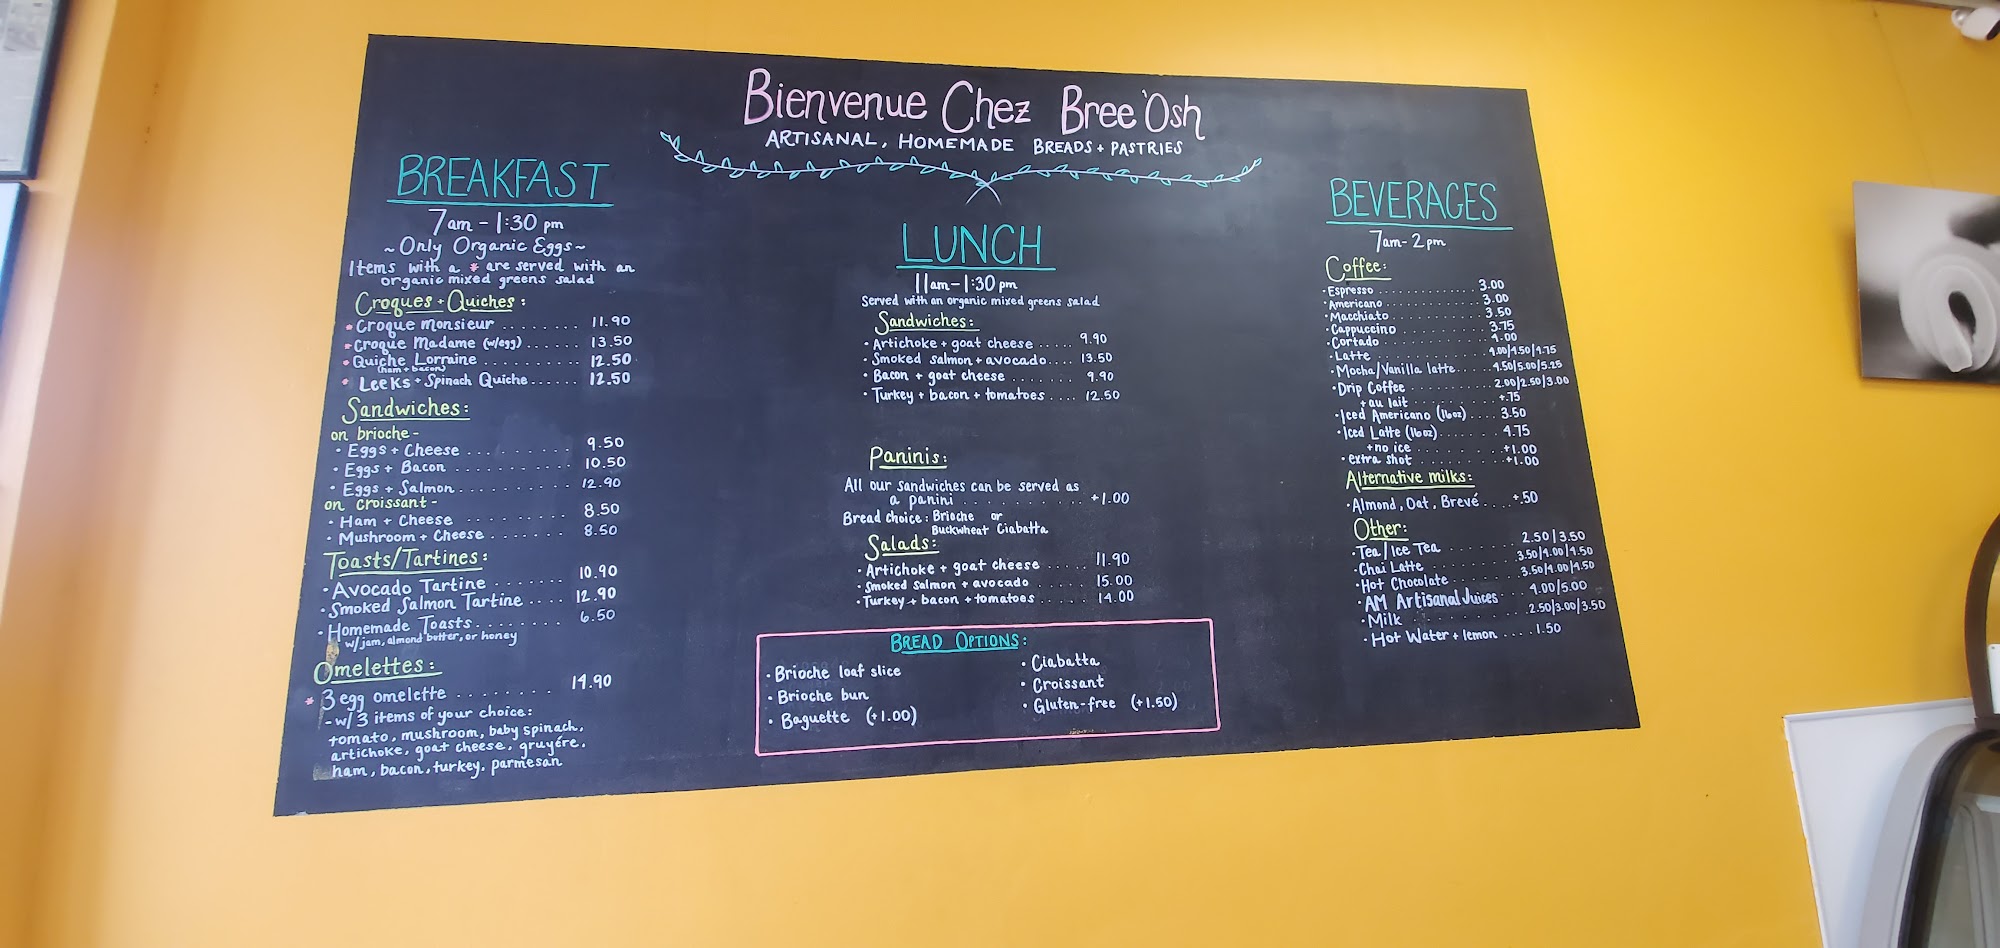 Bienvenue Chez Bree'Osh
ARTISANAL, HOMEMADE BREADS + PASTRIES
BREAKFAST
7am - 1:30 pm
~ Only Organic Eggs ~
Items with a * are served with an
organic mixed greens salad
Croques + Quiches:
* Croque Monsieur ........ 11.90
* Croque Madame (w/egg) ...... 13.50
* Quiche Lorraine .......... 12.50
(ham + bacon)
* Leeks + Spinach Quiche...... 12.50
Sandwiches:
on brioche -
• Eggs + Cheese .......... 9.50
• Eggs + Bacon .......... 10.50
• Eggs + Salmon .......... 12.90
on croissant -
• Ham + Cheese .......... 8.50
• Mushroom + Cheese ....... 8.50
Toasts/Tartines:
• Avocado Tartine ....... 10.90
• Smoked Salmon Tartine .... 12.90
• Homemade Toasts ........ 6.50
w/jam, almond butter, or honey
Omelettes:
* 3 egg omelette ........ 14.90
- w/ 3 items of your choice:
tomato, mushroom, baby spinach,
artichoke, goat cheese, gruyére,
ham, bacon, turkey, parmesan
LUNCH
11am - 1:30 pm
Served with an organic mixed greens salad
Sandwiches:
• Artichoke + goat cheese ..... 9.90
• Smoked salmon + avocado.... 13.50
• Bacon + goat cheese ....... 9.90
• Turkey + bacon + tomatoes .... 12.50
Paninis:
All our sandwiches can be served as
a panini ............ +1.00
Bread choice: Brioche or
Buckwheat Ciabatta
Salads:
• Artichoke + goat cheese ..... 11.90
• Smoked Salmon + avocado ...... 15.00
• Turkey + bacon + tomatoes ..... 14.00
BREAD OPTIONS:
• Brioche loaf slice
• Brioche bun
• Baguette (+1.00)
• Ciabatta
• Croissant
• Gluten-free (+1.50)
BEVERAGES
7am - 2pm
Coffee:
• Espresso ............ 3.00
• Americano ............ 3.00
• Macchiato ............ 3.50
• Cappuccino ........... 3.75
• Cortado ............. 4.00
• Latte ............. 4.00/4.50/4.75
• Mocha/Vanilla latte..... 4.50/5.00/5.25
• Drip Coffee ......... 2.00/2.50/3.00
+ au lait .......... +.75
• Iced Americano (16oz) .... 3.50
• Iced Latte (16oz)........ 4.75
+ no ice .......... +1.00
• extra shot .......... +1.00
Alternative milks:
• Almond, Oat, Brevé .... +.50
Other:
• Tea/Ice Tea ....... 2.50/3.50
• Chai Latte ........ 3.50/4.00/4.50
• Hot Chocolate ...... 3.50/4.00/4.50
• AM Artisanal Juices ... 4.00/5.00
• Milk ........... 2.50/3.00/3.50
• Hot Water + lemon .... 1.50